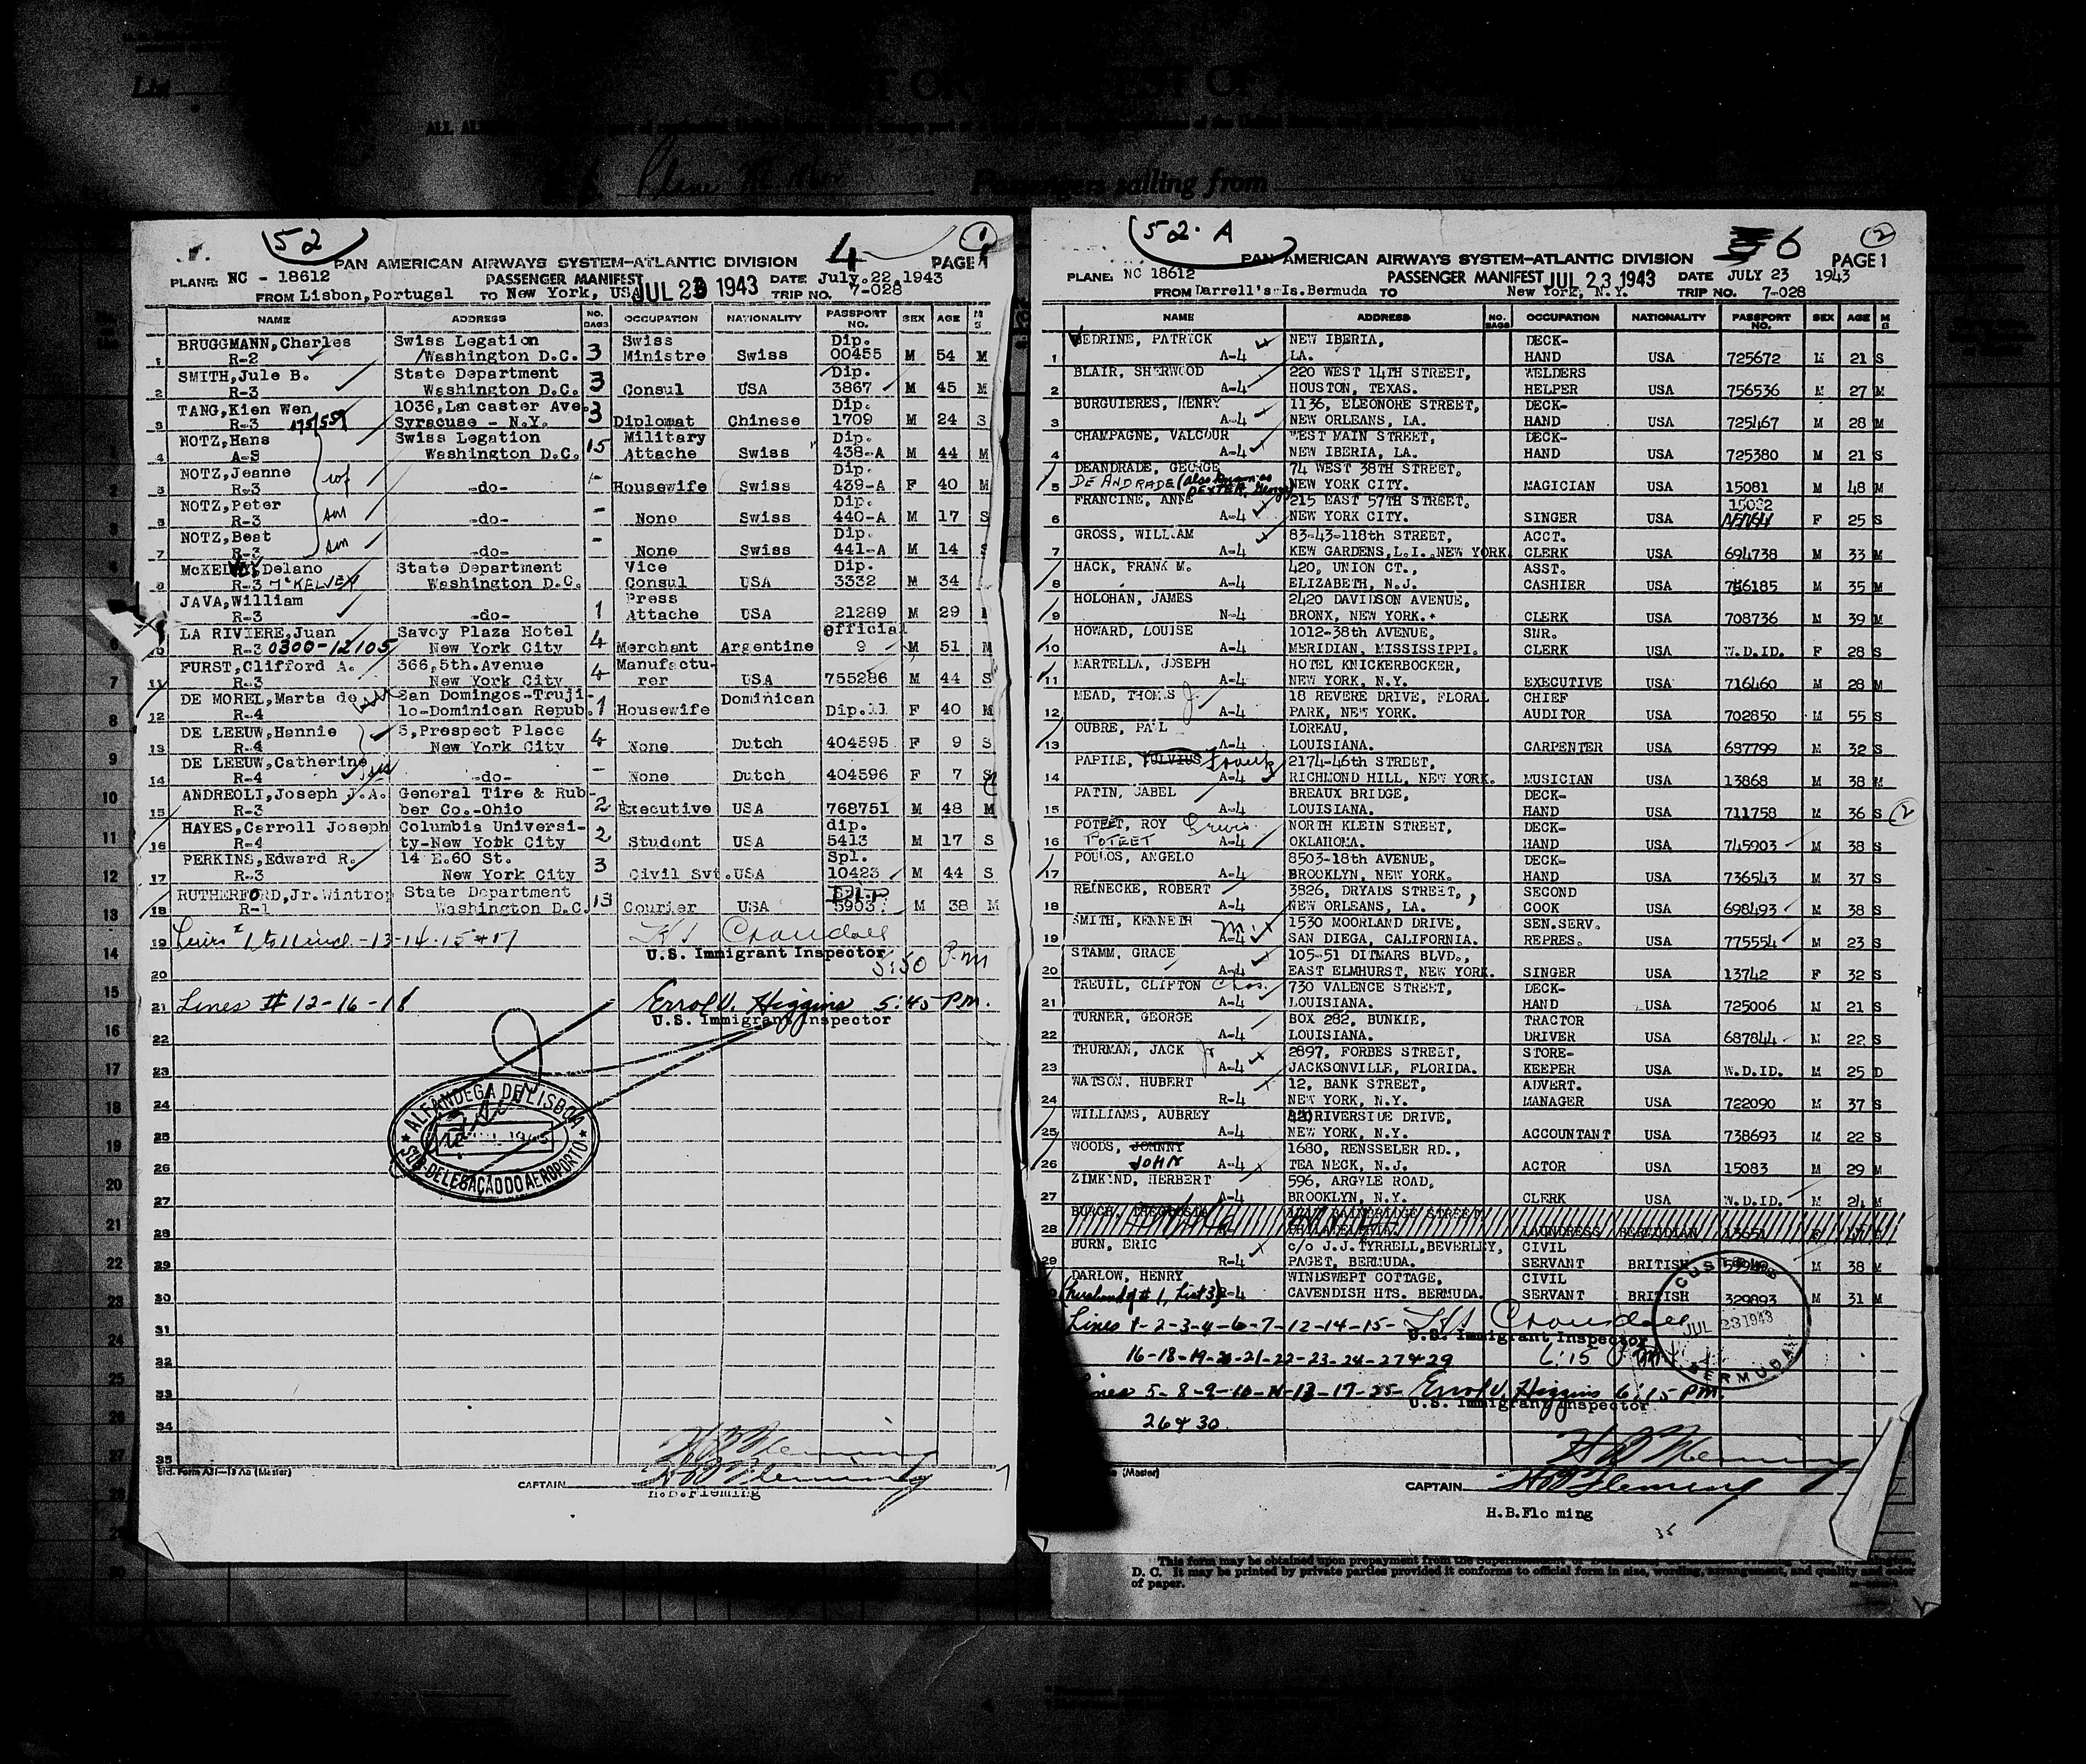 Passengers sailing from
52
4
1
PAN AMERICAN AIRWAYS SYSTEM-ATLANTIC DIVISION PAGE 1
PLANE: NC - 18612 PASSENGER MANIFEST JUL 23 1943 DATE July 22 1943
FROM Lisbon, Portugal TO New York, USA TRIP NO. 7-028
NAME ADDRESS NO. BAGS OCCUPATION NATIONALITY PASSPORT NO. SEX AGE M S
BRUGGMANN, Charles Swiss Legation Swiss Dip.
1 R-2 Washington D.C. 3 Ministre Swiss 00455 M 54 M
SMITH, Jule B. State Department Dip.
2 R-3 Washington D.C. 3 Consul USA 3867 M 45 M
TANG, Kien Wen 1036, Lancaster Ave. Dip.
3 R-3 175/559 Syracuse - N.Y. 3 Diplomat Chinese 1709 M 24 S
NOTZ, Hans Swiss Legation Military Dip.
4 A-S Washington D.C. 15 Attache Swiss 438-A M 44 M
NOTZ, Jeanne Dip.
5 R-3 wf -do- - Housewife Swiss 439-A F 40 M
NOTZ, Peter Dip.
6 R-3 son -do- - None Swiss 440-A M 17 S
NOTZ, Beat Dip.
7 R-3 son -do- - None Swiss 441-A M 14 S
Delano State Department Vice Dip.
8 R-3 McKELVEY Washington D.C. Consul USA 3332 M 34
JAVA, William Press
9 R-3 -do- 1 Attache USA 21289 M 29
LA RIVIERE, Juan Savoy Plaza Hotel official
10 R-3 0300-12105 New York City 4 Merchant Argentine 9 M 51 M
FURST, Clifford A. 366, 5th. Avenue Manufactu-
11 R-3 New York City 4 rer USA 755286 M 44 S
DE MOREL, Marta de San Domingos-Truji- Dominican
12 R-4 lo-Dominican Repub. 1 Housewife Dip.11 F 40 M
DE LEEUW, Hannie 5, Prospect Place
13 R-4 New York City 4 None Dutch 404595 F 9 S
DE LEEUW, Catherine
14 R-4 -do- - None Dutch 404596 F 7 S
ANDREOLI, Joseph J.A. General Tire & Rub-
15 R-3 ber Co.-Ohio 2 Executive USA 768751 M 48 M
HAYES, Carroll Joseph Columbia Universi- dip.
16 R-4 ty-New York City 2 Student USA 5413 M 17 S
PERKINS, Edward R. 14 E.60 St. Spl.
17 R-3 New York City 3 Civil Svt. USA 10423 M 44 S
RUTHERFORD, Jr. Wintrop State Department
18 R-1 Washington D.C. 13 Courier USA 5903 M 38 M
19 Lines # 1 to 11 incl. -13-14-15 & 17 Crandall
U.S. Immigrant Inspector
20 5:50 P.M
21 Lines # 12-16-18 Errol V. Higgins 5:45 P.M.
U.S. Immigrant Inspector
22
23
24
25
26
27
28
29
30
31
32
33
34
35
ALFANDEGA DE LISBOA
SUB-DELEGAÇÃO DO AEROPORTO
H B Fleming
Std. Form (Master)
CAPTAIN H B Fleming
H.B.Fleming
52-A
6
2
PAN AMERICAN AIRWAYS SYSTEM-ATLANTIC DIVISION PAGE 1
PLANE: NC 18612 PASSENGER MANIFEST JUL 23 1943 DATE JULY 23 1943
FROM Darrell's Is. Bermuda TO New York, N.Y. TRIP NO. 7-028
NAME ADDRESS NO. BAGS OCCUPATION NATIONALITY PASSPORT NO. SEX AGE M S
VEDRINE, PATRICK NEW IBERIA, DECK-
1 A-4 LA. HAND USA 725672 M 21 S
BLAIR, SHERWOOD 220 WEST 14TH STREET, WELDERS
2 A-4 HOUSTON, TEXAS. HELPER USA 756536 M 27 M
BURGUIERES, HENRY 1136, ELEONORE STREET, DECK-
3 A-4 NEW ORLEANS, LA. HAND USA 725467 M 28 M
CHAMPAGNE, VALCOUR WEST MAIN STREET, DECK-
4 A-4 NEW IBERIA, LA. HAND USA 725380 M 21 S
DEANDRADE, GEORGE 74 WEST 38TH STREET,
5 DE ANDRADE (also known as DEXTER, George) NEW YORK CITY. MAGICIAN USA 15081 M 48 M
FRANCINE, ANNE 215 EAST 57TH STREET, 15082
6 A-4 NEW YORK CITY. SINGER USA F 25 S
GROSS, WILLIAM 83-43-118th STREET, ACCT.
7 A-4 KEW GARDENS, L.I., NEW YORK. CLERK USA 694738 M 33 M
HACK, FRANK M. 420, UNION CT., ASST.
8 A-4 ELIZABETH, N.J. CASHIER USA 746185 M 35 M
HOLOHAN, JAMES 2420 DAVIDSON AVENUE,
9 N-4 BRONX, NEW YORK. CLERK USA 708736 M 39 M
HOWARD, LOUISE 1012-38th AVENUE, SNR.
10 A-4 MERIDIAN, MISSISSIPPI. CLERK USA W.D.ID. F 28 S
MARTELLA, JOSEPH HOTEL KNICKERBOCKER,
11 A-4 NEW YORK, N.Y. EXECUTIVE USA 716460 M 28 M
MEAD, THOMAS J. 18 REVERE DRIVE, FLORAL CHIEF
12 A-4 PARK, NEW YORK. AUDITOR USA 702850 M 55 S
OUBRE, PAUL LOREAU,
13 A-4 LOUISIANA. CARPENTER USA 687799 M 32 S
PAPILE, FULVIUS Frank 2174-46th STREET,
14 A-4 RICHMOND HILL, NEW YORK. MUSICIAN USA 13868 M 38 M
PATIN, CABEL BREAUX BRIDGE, DECK-
15 A-4 LOUISIANA. HAND USA 711758 M 36 S 2
POTEET, ROY Lewis NORTH KLEIN STREET, DECK-
16 POTEET A-4 OKLAHOMA. HAND USA 745903 M 38 S
POULOS, ANGELO 8503-18th AVENUE, DECK-
17 A-4 BROOKLYN, NEW YORK. HAND USA 736543 M 37 S
REINECKE, ROBERT 3826, DRYADS STREET, SECOND
18 A-4 NEW ORLEANS, LA. COOK USA 698493 M 38 S
SMITH, KENNETH M. 1530 MOORLAND DRIVE, SEN.SERV.
19 A-4 SAN DIEGO, CALIFORNIA. REPRES. USA 775554 M 23 S
STAMM, GRACE 105-51 DITMARS BLVD.,
20 A-4 EAST ELMHURST, NEW YORK. SINGER USA 13742 F 32 S
TREUIL, CLIFTON Chas. 730 VALENCE STREET, DECK-
21 A-4 LOUISIANA. HAND USA 725006 M 21 S
TURNER, GEORGE BOX 282, BUNKIE, TRACTOR
22 A-4 LOUISIANA. DRIVER USA 687844 M 22 S
THURMAN, JACK Jr 2897, FORBES STREET, STORE-
23 A-4 JACKSONVILLE, FLORIDA. KEEPER USA W.D.ID. M 25 D
WATSON, HUBERT 12, BANK STREET, ADVERT.
24 R-4 NEW YORK, N.Y. MANAGER USA 722090 M 37 S
WILLIAMS, AUBREY RIVERSIDE DRIVE,
25 A-4 NEW YORK, N.Y. ACCOUNTANT USA 738693 M 22 S
WOODS, JOHNNY 1680, RENSSELER RD.,
26 JOHN A-4 TEA NECK, N.J. ACTOR USA 15083 M 29 M
ZIMKIND, HERBERT 596, ARGYLE ROAD,
27 A-4 BROOKLYN, N.Y. CLERK USA W.D.ID. M 24 M
BURCH, THEODOSIA 1217 BAINBRIDGE STREET
28 PHILADELPHIA. LAUNDRESS BERMUDIAN
BURN, ERIC c/o J.J. TYRRELL, BEVERLEY, CIVIL
29 R-4 PAGET, BERMUDA. SERVANT BRITISH M 38 M
DARLOW, HENRY WINDSWEPT COTTAGE, CIVIL
(husband of #1, List 3) R-4 CAVENDISH HTS. BERMUDA. SERVANT BRITISH 329893 M 31 M
Lines 1-2-3-4-6-7-12-14-15- Crandall
U.S. Immigrant Inspector
16-18-19-20-21-22-23-24-27&29 6:15 PM
Lines 5-8-9-10-11-13-17-25- Errol V. Higgins 6:15 PM
U.S. Immigrant Inspector
26 & 30.
CUSTOMS
JUL 23 1943
BERMUDA
H B Fleming
(Master)
CAPTAIN H B Fleming
H.B.Fle ming
35
This form may be obtained upon prepayment from the Superintendent of
D. C. It may be printed by private parties provided it conforms to official form in size, wording, arrangement, and quality and color
of paper.